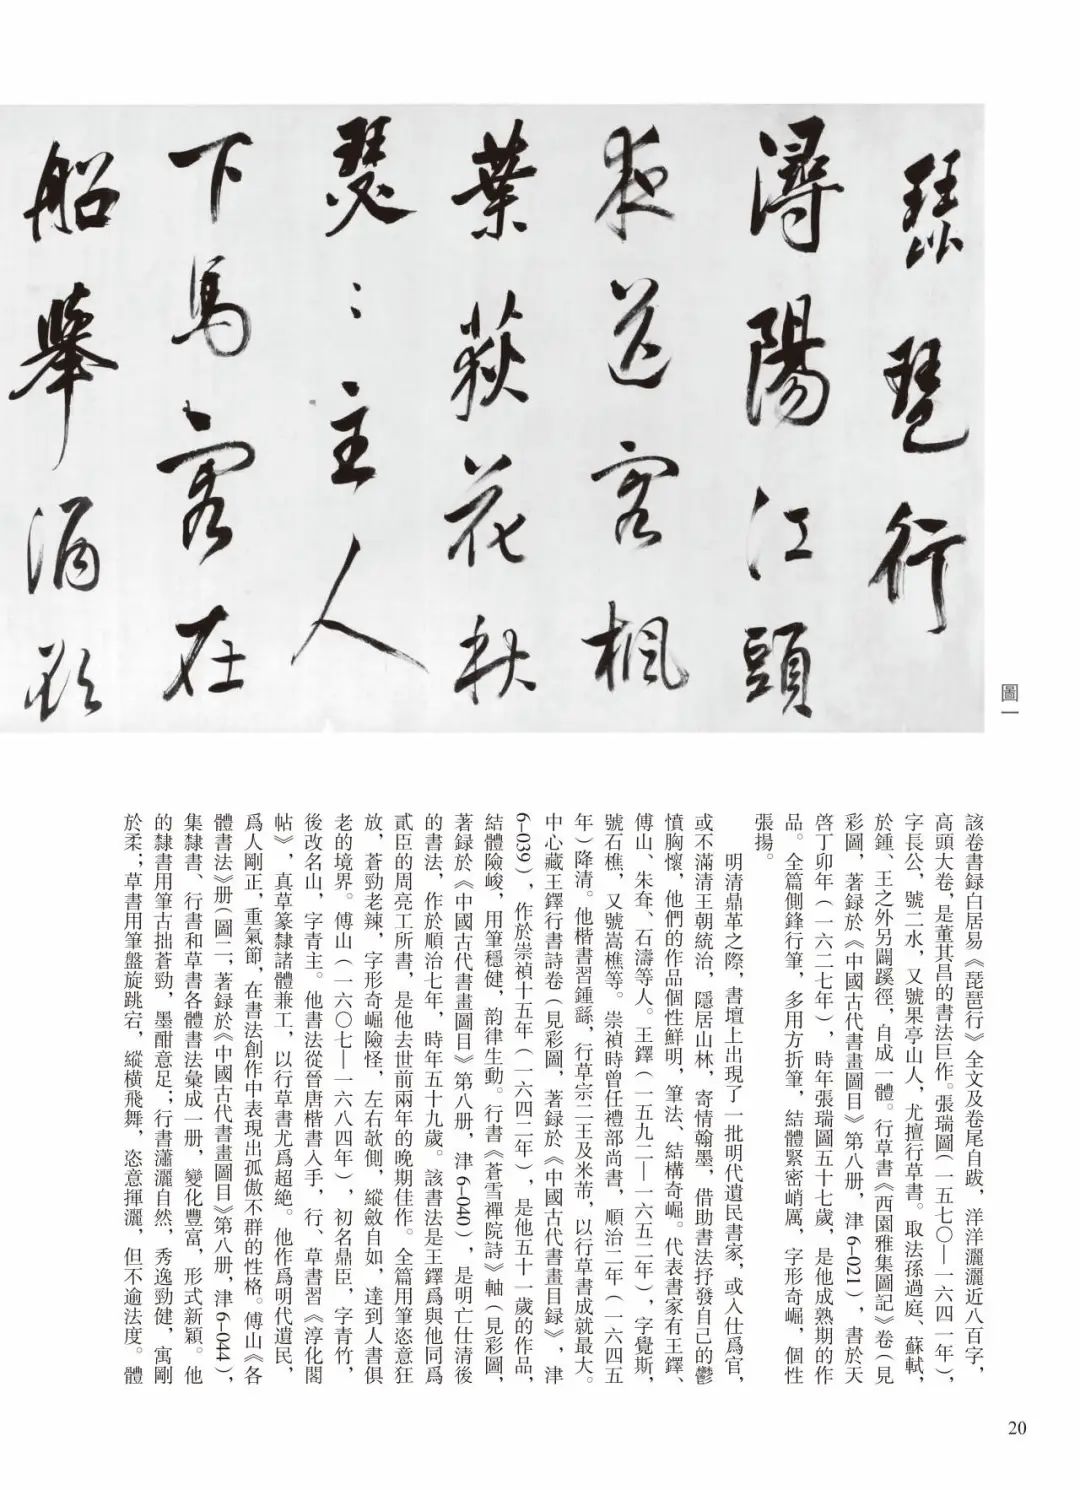 琵琶行
潯陽江頭
夜送客楓
葉荻花秋
瑟〻主人
下馬客在
船舉酒欲
圖一
該卷書録白居易《琵琶行》全文及卷尾自跋，洋洋灑灑近八百字，
高頭大卷，是董其昌的書法巨作。張瑞圖（一五七〇—一六四一年），
字長公，號二水，又號果亭山人，尤擅行草書。取法孫過庭、蘇軾，
於鍾、王之外另闢蹊徑，自成一體。行草書《西園雅集圖記》卷（見
彩圖，著録於《中國古代書畫圖目》第八册，津6-021），書於天
啓丁卯年（一六二七年），時年張瑞圖五十七歲，是他成熟期的作
品。全篇側鋒行筆，多用方折筆，結體緊密峭厲，字形奇崛，個性
張揚。
明清鼎革之際，書壇上出現了一批明代遺民書家，或入仕爲官，
或不滿清王朝統治，隱居山林，寄情翰墨，借助書法抒發自己的鬱
憤胸懷，他們的作品個性鮮明，筆法、結構奇崛。代表書家有王鐸、
傅山、朱耷、石濤等人。王鐸（一五九二—一六五二年），字覺斯，
號石樵，又號嵩樵等。崇禎時曾任禮部尚書，順治二年（一六四五
年）降清。他楷書習鍾繇，行草宗二王及米芾，以行草書成就最大。
中心藏王鐸行書詩卷（見彩圖，著録於《中國古代書畫目録》，津
6-039），作於崇禎十五年（一六四二年），是他五十一歲的作品，
結體險峻，用筆穩健，韵律生動。行書《蒼雪禪院詩》軸（見彩圖，
著録於《中國古代書畫圖目》第八册，津6-040），是明亡仕清後
的書法，作於順治七年，時年五十九歲。該書法是王鐸爲與他同爲
貳臣的周亮工所書，是他去世前兩年的晚期佳作。全篇用筆恣意狂
放，蒼勁老辣，字形奇崛險怪，左右欹側，縱斂自如，達到人書俱
老的境界。傅山（一六〇七—一六八四年），初名鼎臣，字青竹，
後改名山，字青主。他書法從晉唐楷書入手，行、草書習《淳化閣
帖》，真草篆隸諸體兼工，以行草書尤爲超絶。他作爲明代遺民，
爲人剛正，重氣節，在書法創作中表現出孤傲不群的性格。傅山《各
體書法》册（圖二，著録於《中國古代書畫圖目》第八册，津6-044），
集隸書、行書和草書各體書法彙成一册，變化豐富，形式新穎。他
的隸書用筆古拙蒼勁，墨酣意足；行書瀟灑自然，秀逸勁健，寓剛
於柔；草書用筆盤旋跳宕，縱橫飛舞，恣意揮灑，但不逾法度。體
20